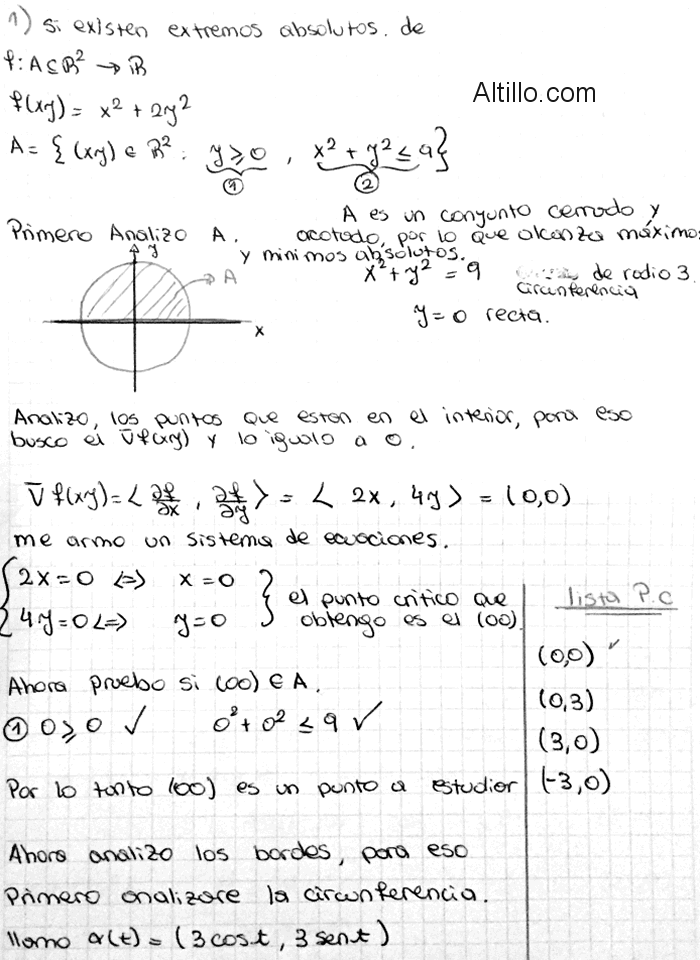 1) Si existen extremos absolutos. de
f: A⊆R² → R
Altillo.com
f(xy) = x² + 2y²
A = { (xy) ∈ R² : y ≥ 0 , x² + y² ≤ 9 }
① ②
A es un conjunto cerrado y
Primero Analizo A. acotado, por lo que alcanza máximos
y minimos absolutos.
y
A
x
x² + y² = 9 de radio 3.
circunferencia
y = 0 recta.
Analizo, los puntos que estan en el interior, para eso
busco el ∇f(xy) y lo igualo a 0.
∇f(xy) = < ∂f/∂x , ∂f/∂y > = < 2x , 4y > = (0,0)
me armo un sistema de ecuaciones.
{ 2x = 0 <=> x = 0
4y = 0 <=> y = 0 }
el punto critico que
obtengo es el (00).
Ahora pruebo si (00) ∈ A.
① 0 ≥ 0 ✓ 0² + 0² ≤ 9 ✓
Por lo tanto (00) es un punto a estudiar
Ahora analizo los bordes, para eso
Primero analizare la circunferencia.
llamo α(t) = (3 cos t , 3 sen t)
lista P.C
(0,0) ✓
(0,3)
(3,0)
(-3,0)